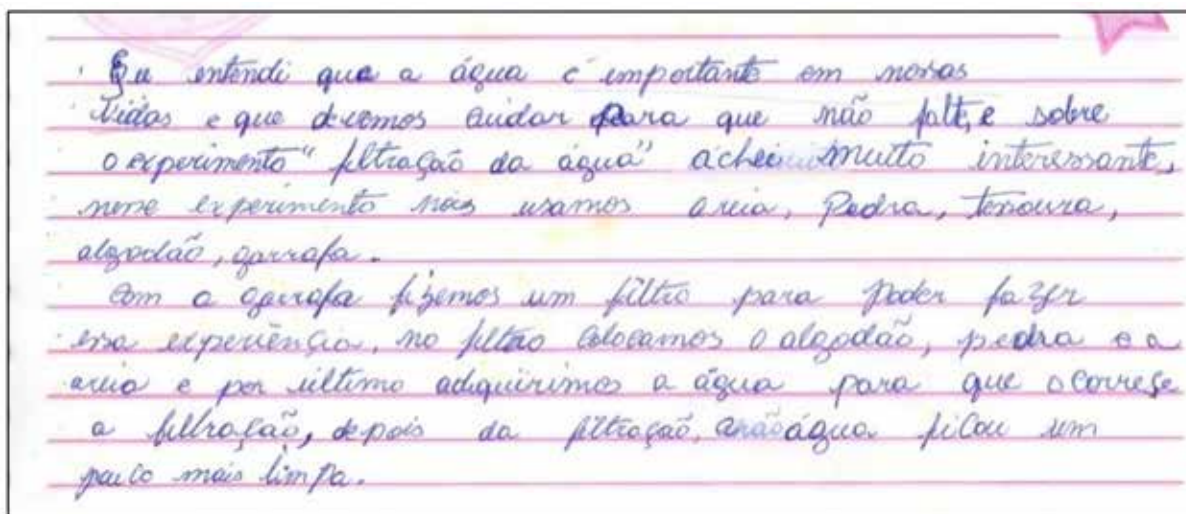 Eu entendi que a água é importante em nossas
vidas e que devemos cuidar para que não falte, e sobre
o experimento "filtração da água" achei muito interessante,
nesse experimento nós usamos areia, Pedra, tesoura,
algodão, garrafa.
Com a garrafa fizemos um filtro para Poder fazer
essa experiência, no filtro colocamos o algodão, pedra e a
areia e por último adiquirimos a água para que ocorrese
a filtração, depois da filtração, a água ficou um
pouco mais limpa.